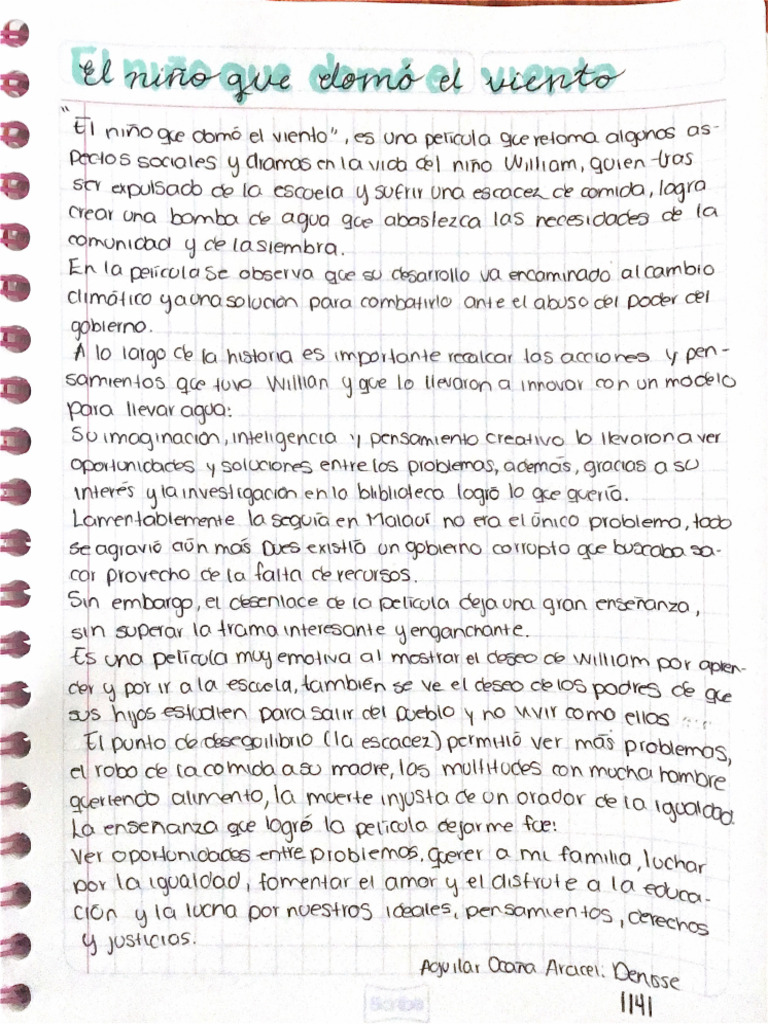 El niño que domó el viento
"El niño que domó el viento", es una película que retoma algunos as-
pectos sociales y dramas en la vida del niño William, quien tras
ser expulsado de la escuela y sufrir una escacez de comida, logra
crear una bomba de agua que abastezca las necesidades de la
comunidad y de la siembra.
En la película se observa que su desarrollo va encaminado al cambio
climático y a una solución para combatirlo ante el abuso del poder del
gobierno.
A lo largo de la historia es importante recalcar las acciones y pen-
samientos que tuvo Willian y que lo llevaron a innovar con un modelo
para llevar agua:
Su imaginación, inteligencia y pensamiento creativo lo llevaron a ver
oportunidades y soluciones entre los problemas, además, gracias a su
interés y la investigación en la bliblioteca logró lo que quería.
Lamentablemente la seguía en Malauí no era el único problema, todo
se agravió aún más pues existió un gobierno corrupto que buscaba sa-
car provecho de la falta de recursos.
Sin embargo, el desenlace de la película deja una gran enseñanza,
sin superar la trama interesante y enganchante.
Es una película muy emotiva al mostrar el deseo de William por apren-
der y por ir a la escuela, también se ve el deseo de los padres de que
sus hijos estudien para salir del pueblo y no vivir como ellos
El punto de desequilibrio (la escacez) permitió ver más problemas,
el robo de la comida a su madre, las multitudes con mucha hambre
queriendo alimento, la muerte injusta de un orador de la igualdad.
La enseñanza que logró la película dejarme fue:
Ver oportunidades entre problemas, querer a mi familia, luchar
por la igualdad, fomentar el amor y el disfrute a la educa-
ción y la lucha por nuestros ideales, pensamientos, derechos
y justicias.
Aguilar Ocaña Araceli Denisse
1141
Scribe